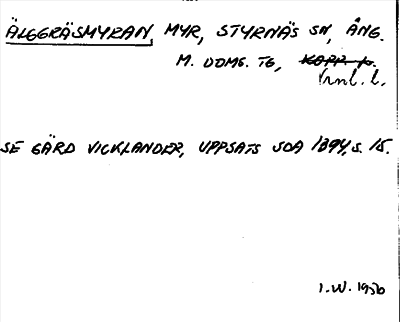 ÄLGGRÄSMYRAN, MYR, STYRNÄS SN, ÅNG.
M. DOMS. TG, KOPP. K.
Ormt. l.
SE GÄRD VICKLANDER, UPPSATS SOA 1894, S. 15.
I.W. 1956